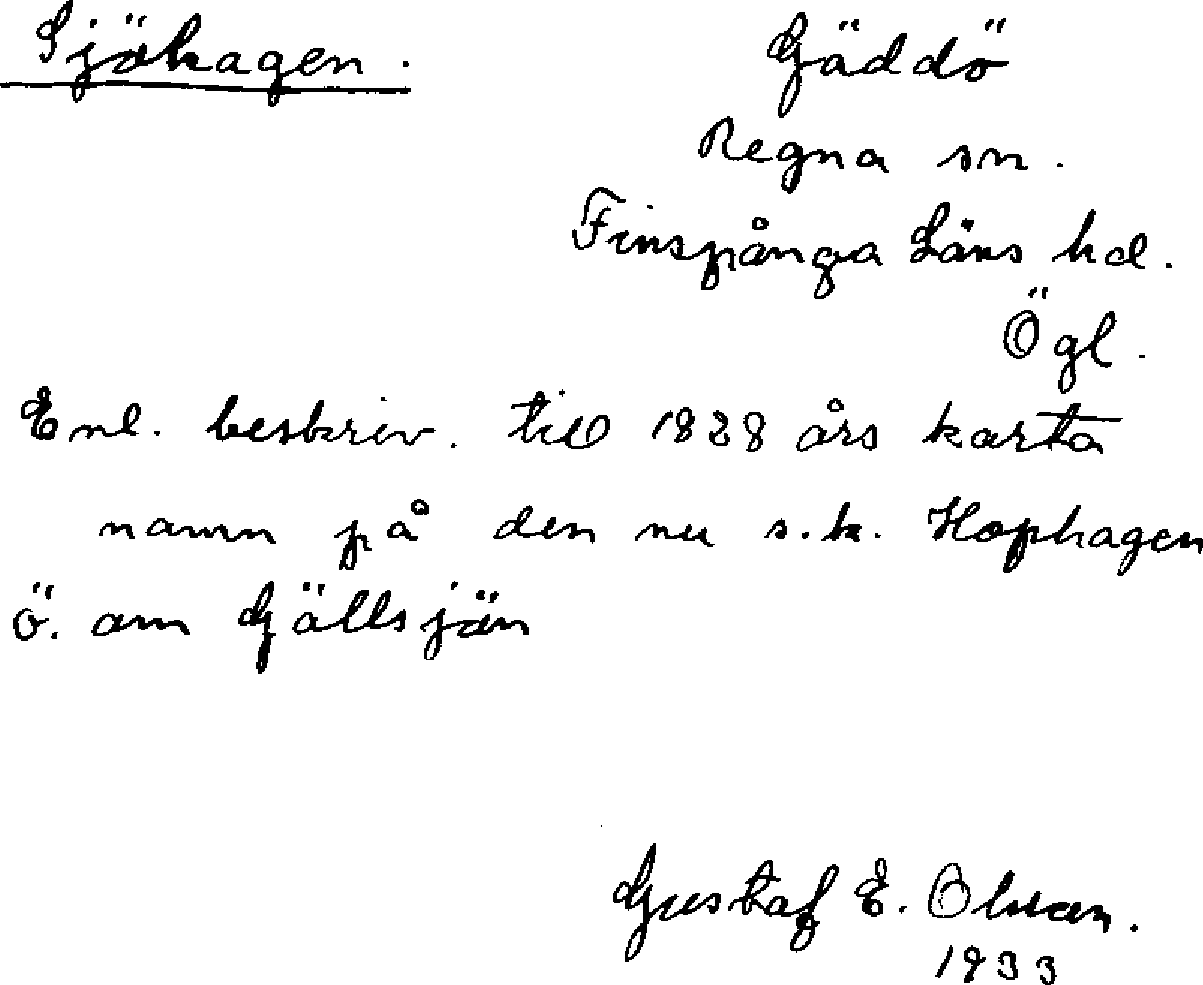 Sjöhagen.
Gäddö
Regna sn.
Finspånga Läns hd.
Ögl.
Enl. beskriv. till 1828 års karta
namn på den nu s.k. Hophagen
ö. om Gällsjön
Gustaf E. Olsson.
1933